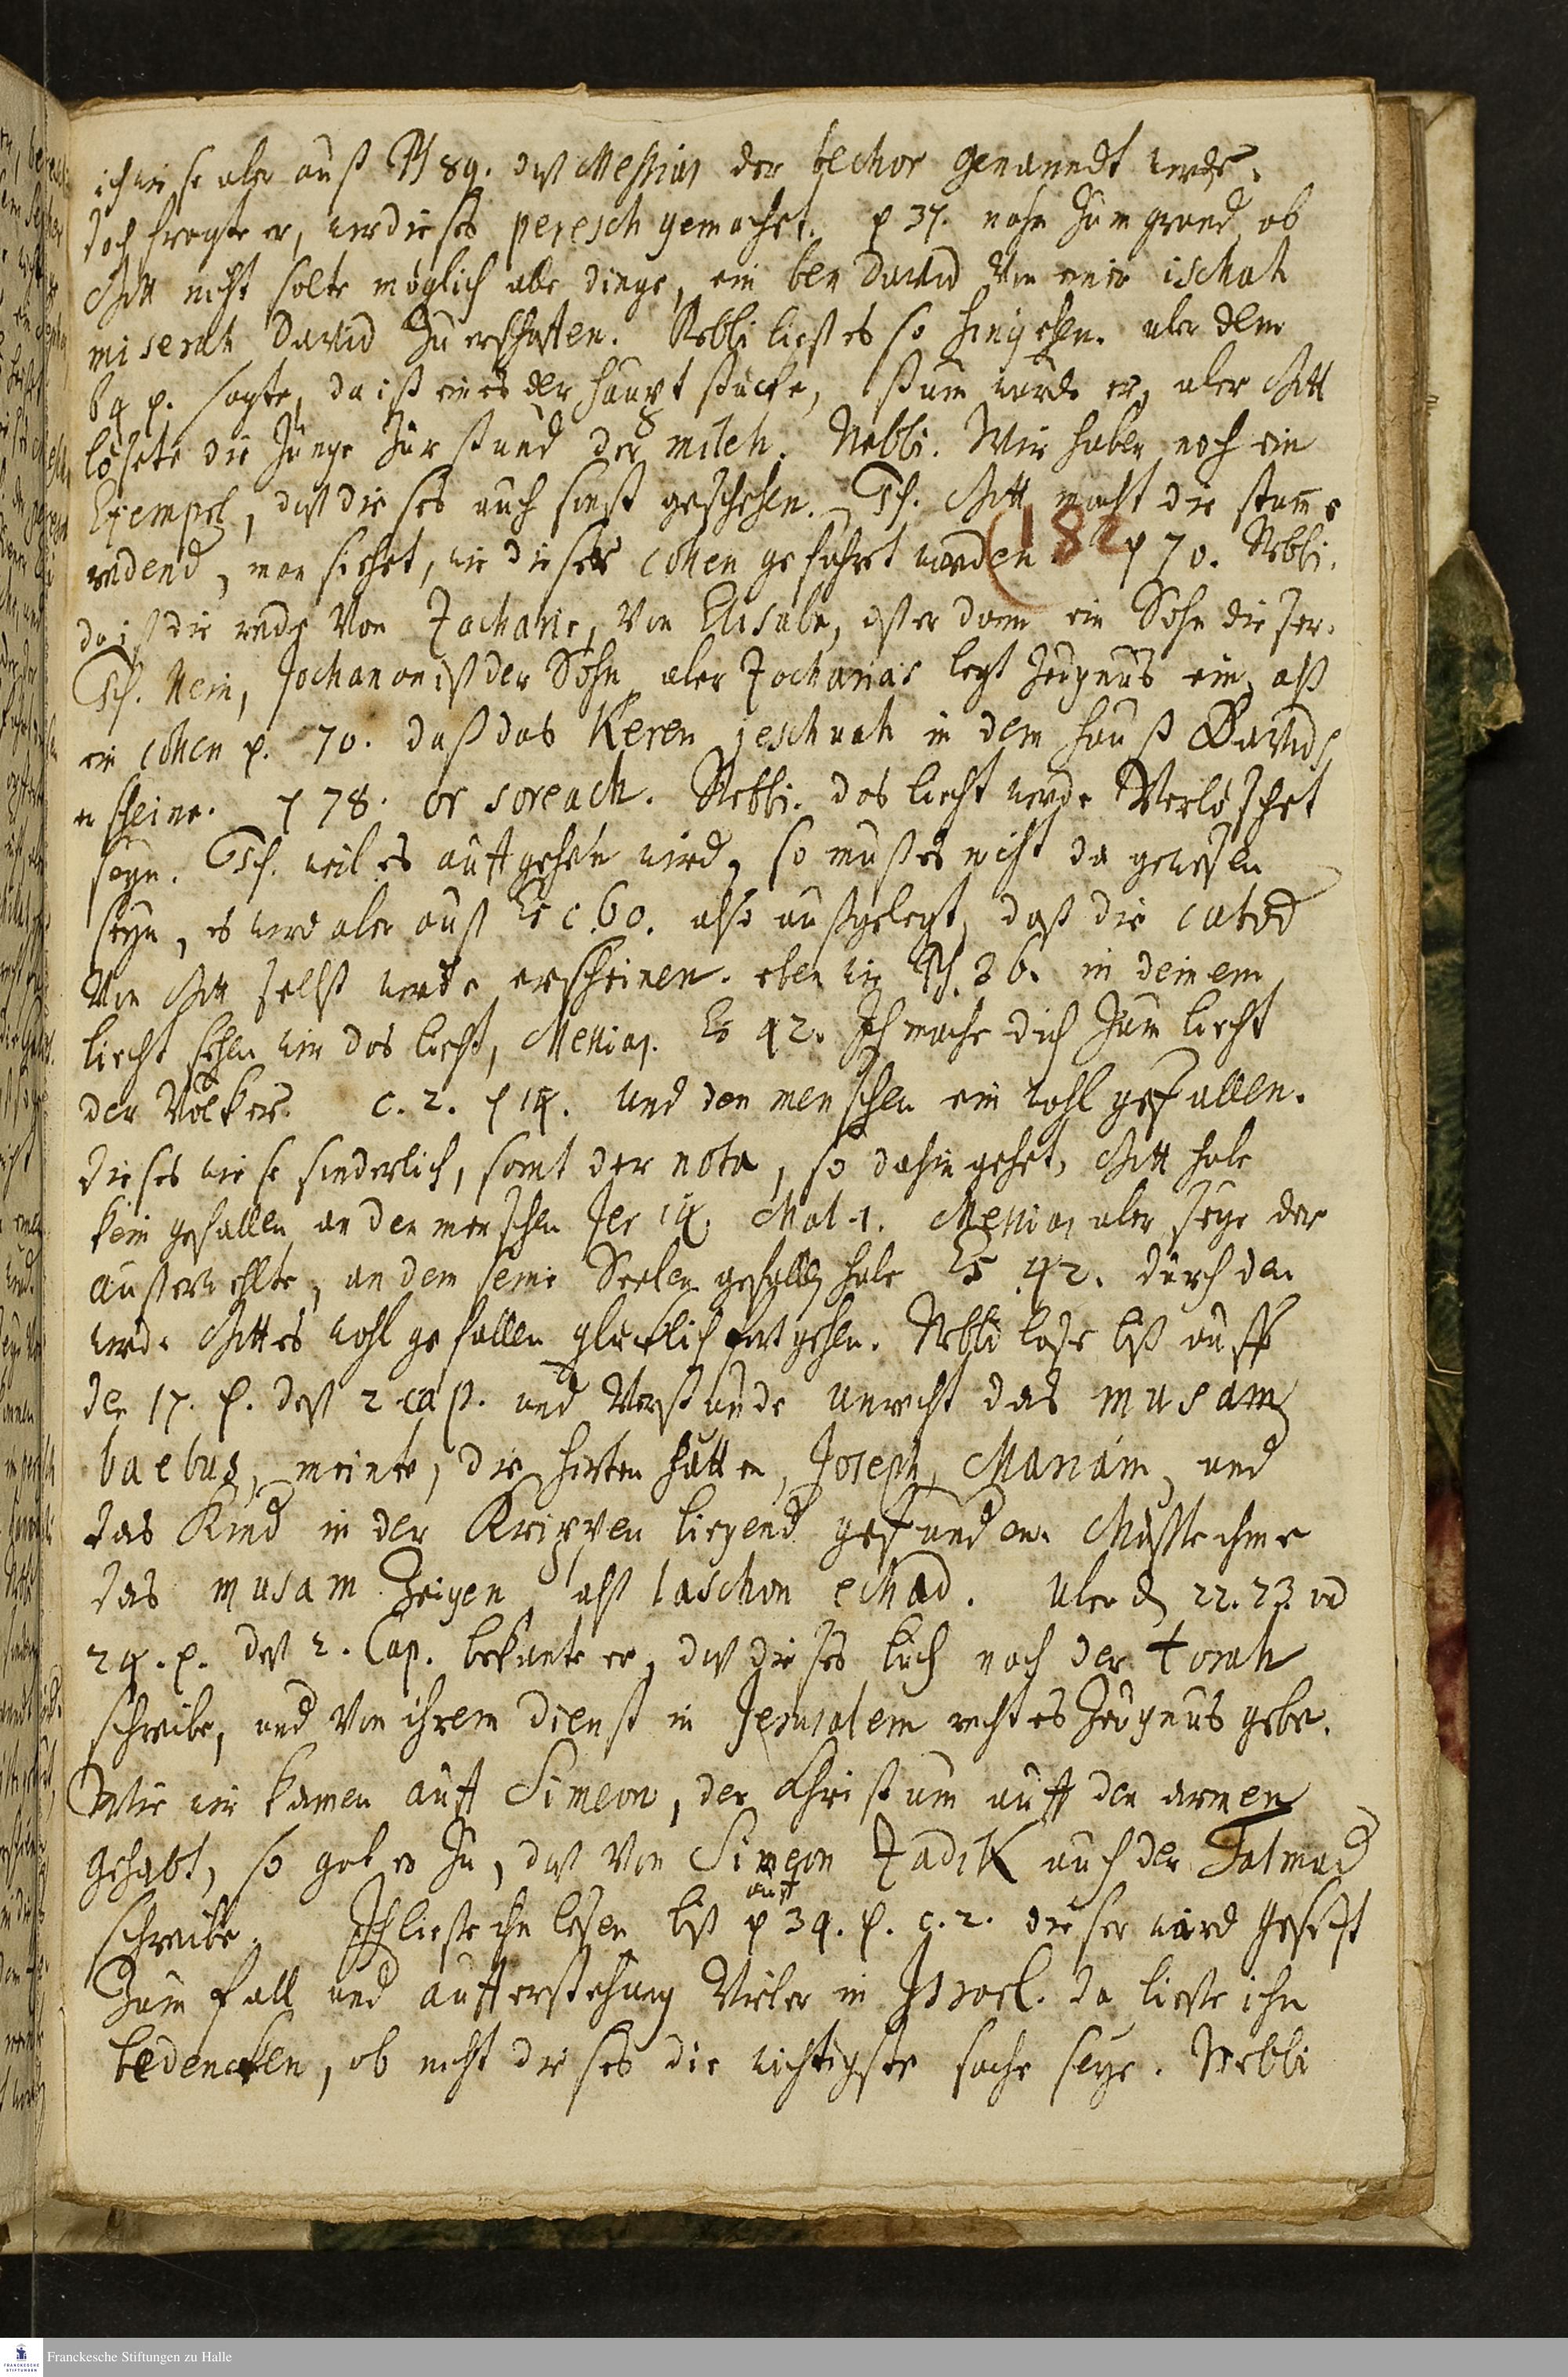 ich wiese aber auß Ps 89. dß Messias der bechor genanndt werde.
doch fragte er, wer dieses peresch gemachet. p 37. nahm zum grund, ob
Gott nicht solte möglich alle dinge, ein ben David von einer ischah
miserah David zu erschaffen. Rebbi ließ es so hingehen. aber dem
64 p. sagte, da ist eines der haupt stücke, stum wurde er, aber Gott
lösete die Zunge zur stund der milch. Rebbi. Wir haben noch ein
Exempel, dß dieses auch sonst geschehen. Ich. Gott macht die stume
redend, man siehet, wie dieser cohen geführet worden p 70. Rebbi.
(182
da ist die rede von Zacharie, von Elisabe, ist er dann ein Sohn dieser.
Ich. Nein, Jochanan ist der Sohn aber Zacharias legt Zeugnus ein, alß
ein cohen p. 70. daß das Keren jeschuah in dem hauß Davids
erscheine. p 78. or soreach. Rebbi. das liecht werde verlöschet
seyn. Ich. weil es auffgehen wird, so muß es nicht da gewesen
seyn, es werd aber auß Es c. 60. also außgelegt, daß die cabod
von Gott selbst werde erscheinen. eben wie Ps. 36. in deinem
liecht sehen wir das liecht, Messias. Es 42. Ich mache dich zum liecht
der Völker. c. 2. p 14. und den menschen ein wohl gefallen.
dieses wiese sonderlich, samt der nota, so dahin gehet, Gott habe
kein gefallen an den menschen Jer 14. Mal. 1. Messias aber seye der
außerwehlte, an dem seine Seelen gefallen habe Es 42. durch den
werde Gottes wohl gefallen glücklich fortgehen. Rebbi lase biß auff
den 17. p. deß 2 cap. und verstunde unrecht das musam
baebus, meinte, die hirten hätten, Joseph, Mariam, und
das Kind in der Krippen liegend gefunden. Mußte ihme
das musam zeigen alß laschon echad. Uber den 22. 23. und
24. p. deß 2. Cap. bekante er, dß dieses buch nach der torah
schreibe, und von ihrem dienst in Jerusalem rechtes Zeugnus gebe.
Wie wir kamen auff Simeon, der Christum auff den armen
gehabt, so gab er zu, dß von Simeon Zadik auch der Talmud
schreibe. Ich ließe ihn lesen biß auff p 34. p. c. 2. dieser wird gesetzt
zum fall und aufferstehung Vieler in Israel. da ließe ihn
bedencken, ob nicht dieses die wichtigste sache seye. Rebbi
Franckesche Stiftungen zu Halle